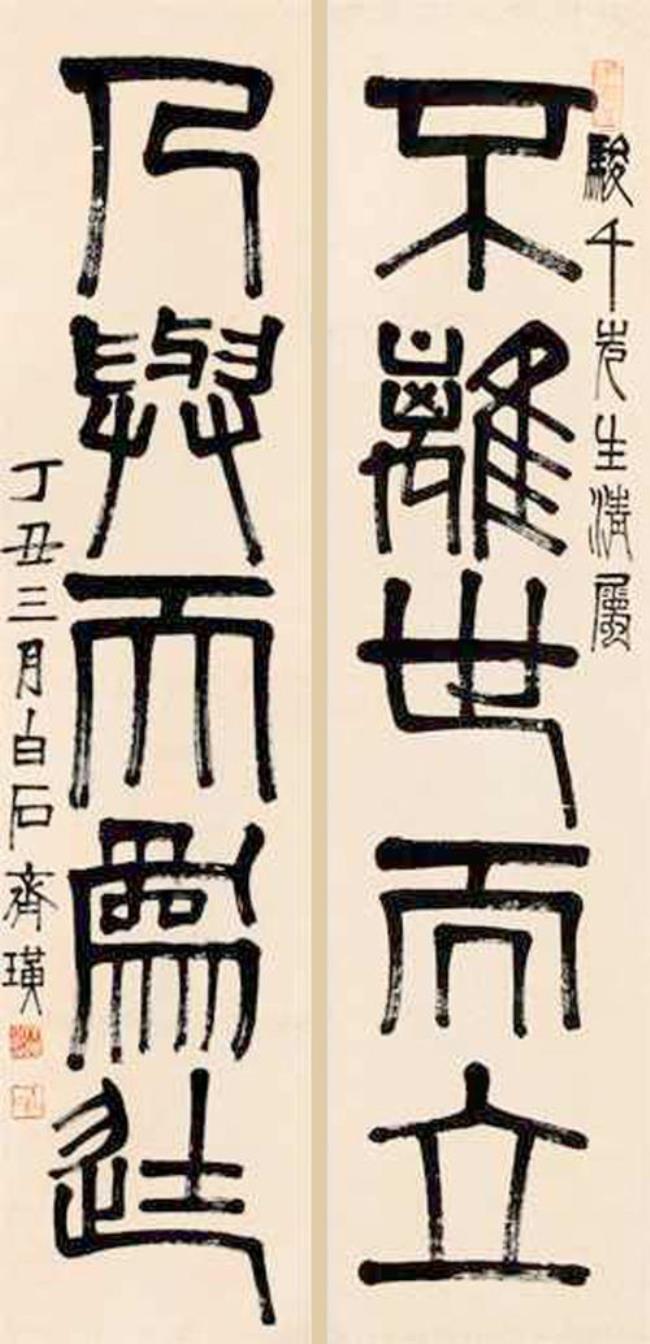 駿千先生清屬
不離世而立
乃與天為徒
丁丑三月白石齊璜